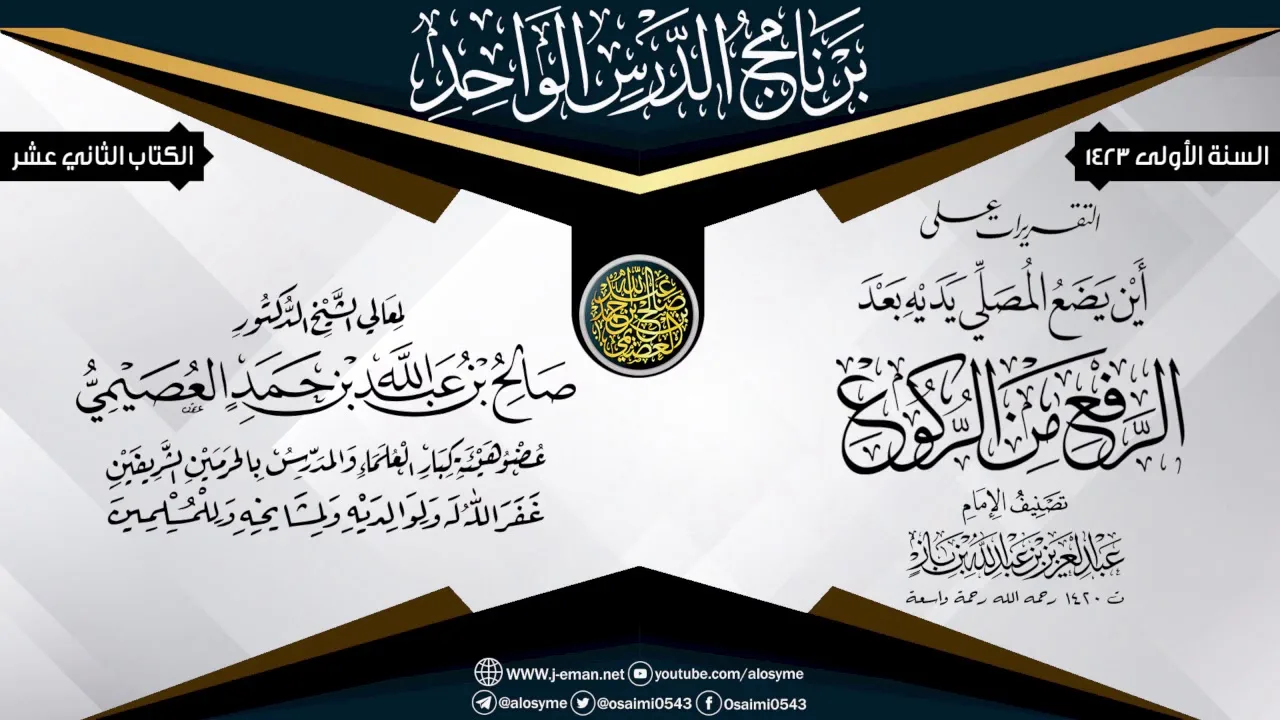 بَرْنَامَجُ الدَّرْسِ الوَاحِدِ
السنة الأولى ١٤٢٣
الكتاب الثاني عشر
التقريرات على
أَيْنَ يَضَعُ المُصَلِّي يَدَيْهِ بَعْدَ
الرَّفْعِ مِنَ الرُّكُوعِ
تَصْنِيفُ الإِمَامِ
عَبْدِ العَزِيزِ بْنِ عَبْدِ اللَّهِ بْنِ بَازٍ
ت ١٤٢٠ رحمه الله رحمة واسعة
لِمَعَالِي الشَّيْخِ الدُّكْتُورِ
صَالِحِ بْنِ عَبْدِ اللَّهِ بْنِ حَمَدٍ العُصَيْمِيِّ
عُضْوُ هَيْئَةِ كِبَارِ الْعُلَمَاءِ وَالمُدَرِّسُ بِالحَرَمَيْنِ الشَّرِيفَيْنِ
غَفَرَ اللَّهُ لَهُ وَلِوَالِدَيْهِ وَلِمَشَايِخِهِ وَلِلْمُسْلِمِينَ
صالح بن عبد الله بن حمد العصيمي
WWW.j-eman.net youtube.com/alosyme
@alosyme @osaimi0543 Osaimi0543